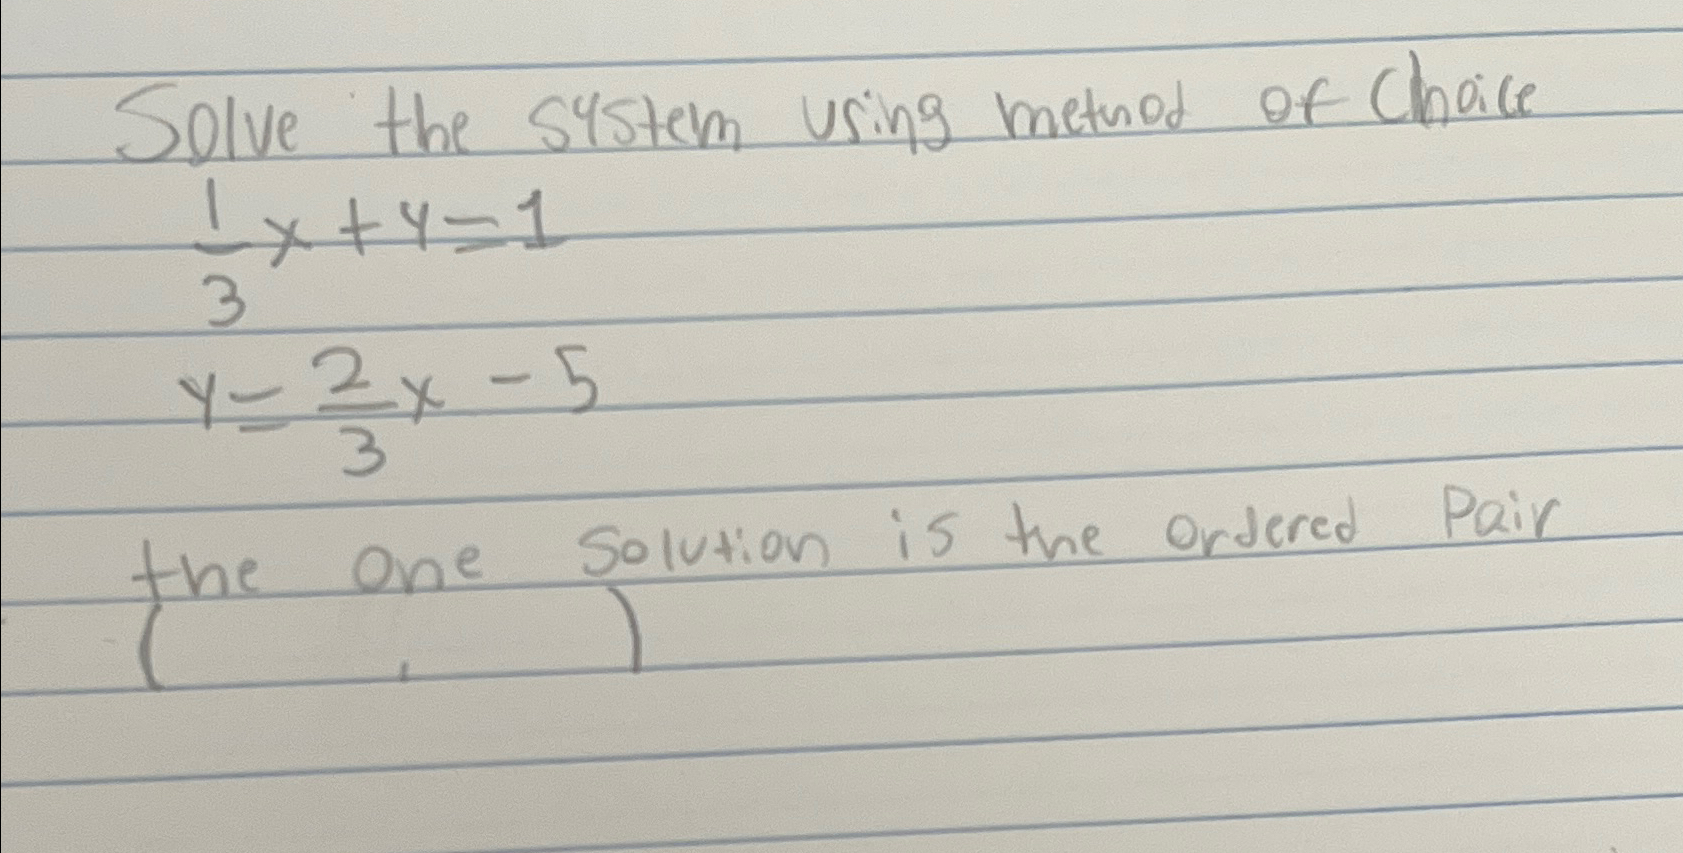 Solve the system using method of Choice
1/3 x + y = 1
y = 2/3 x - 5
the one solution is the ordered Pair
( , )